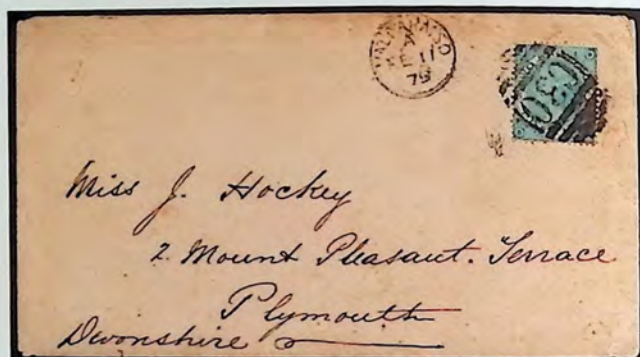 VALPARAISO
11
79
C30
Miss J. Hockey
2. Mount Pleasant. Terrace
Plymouth
Devonshire